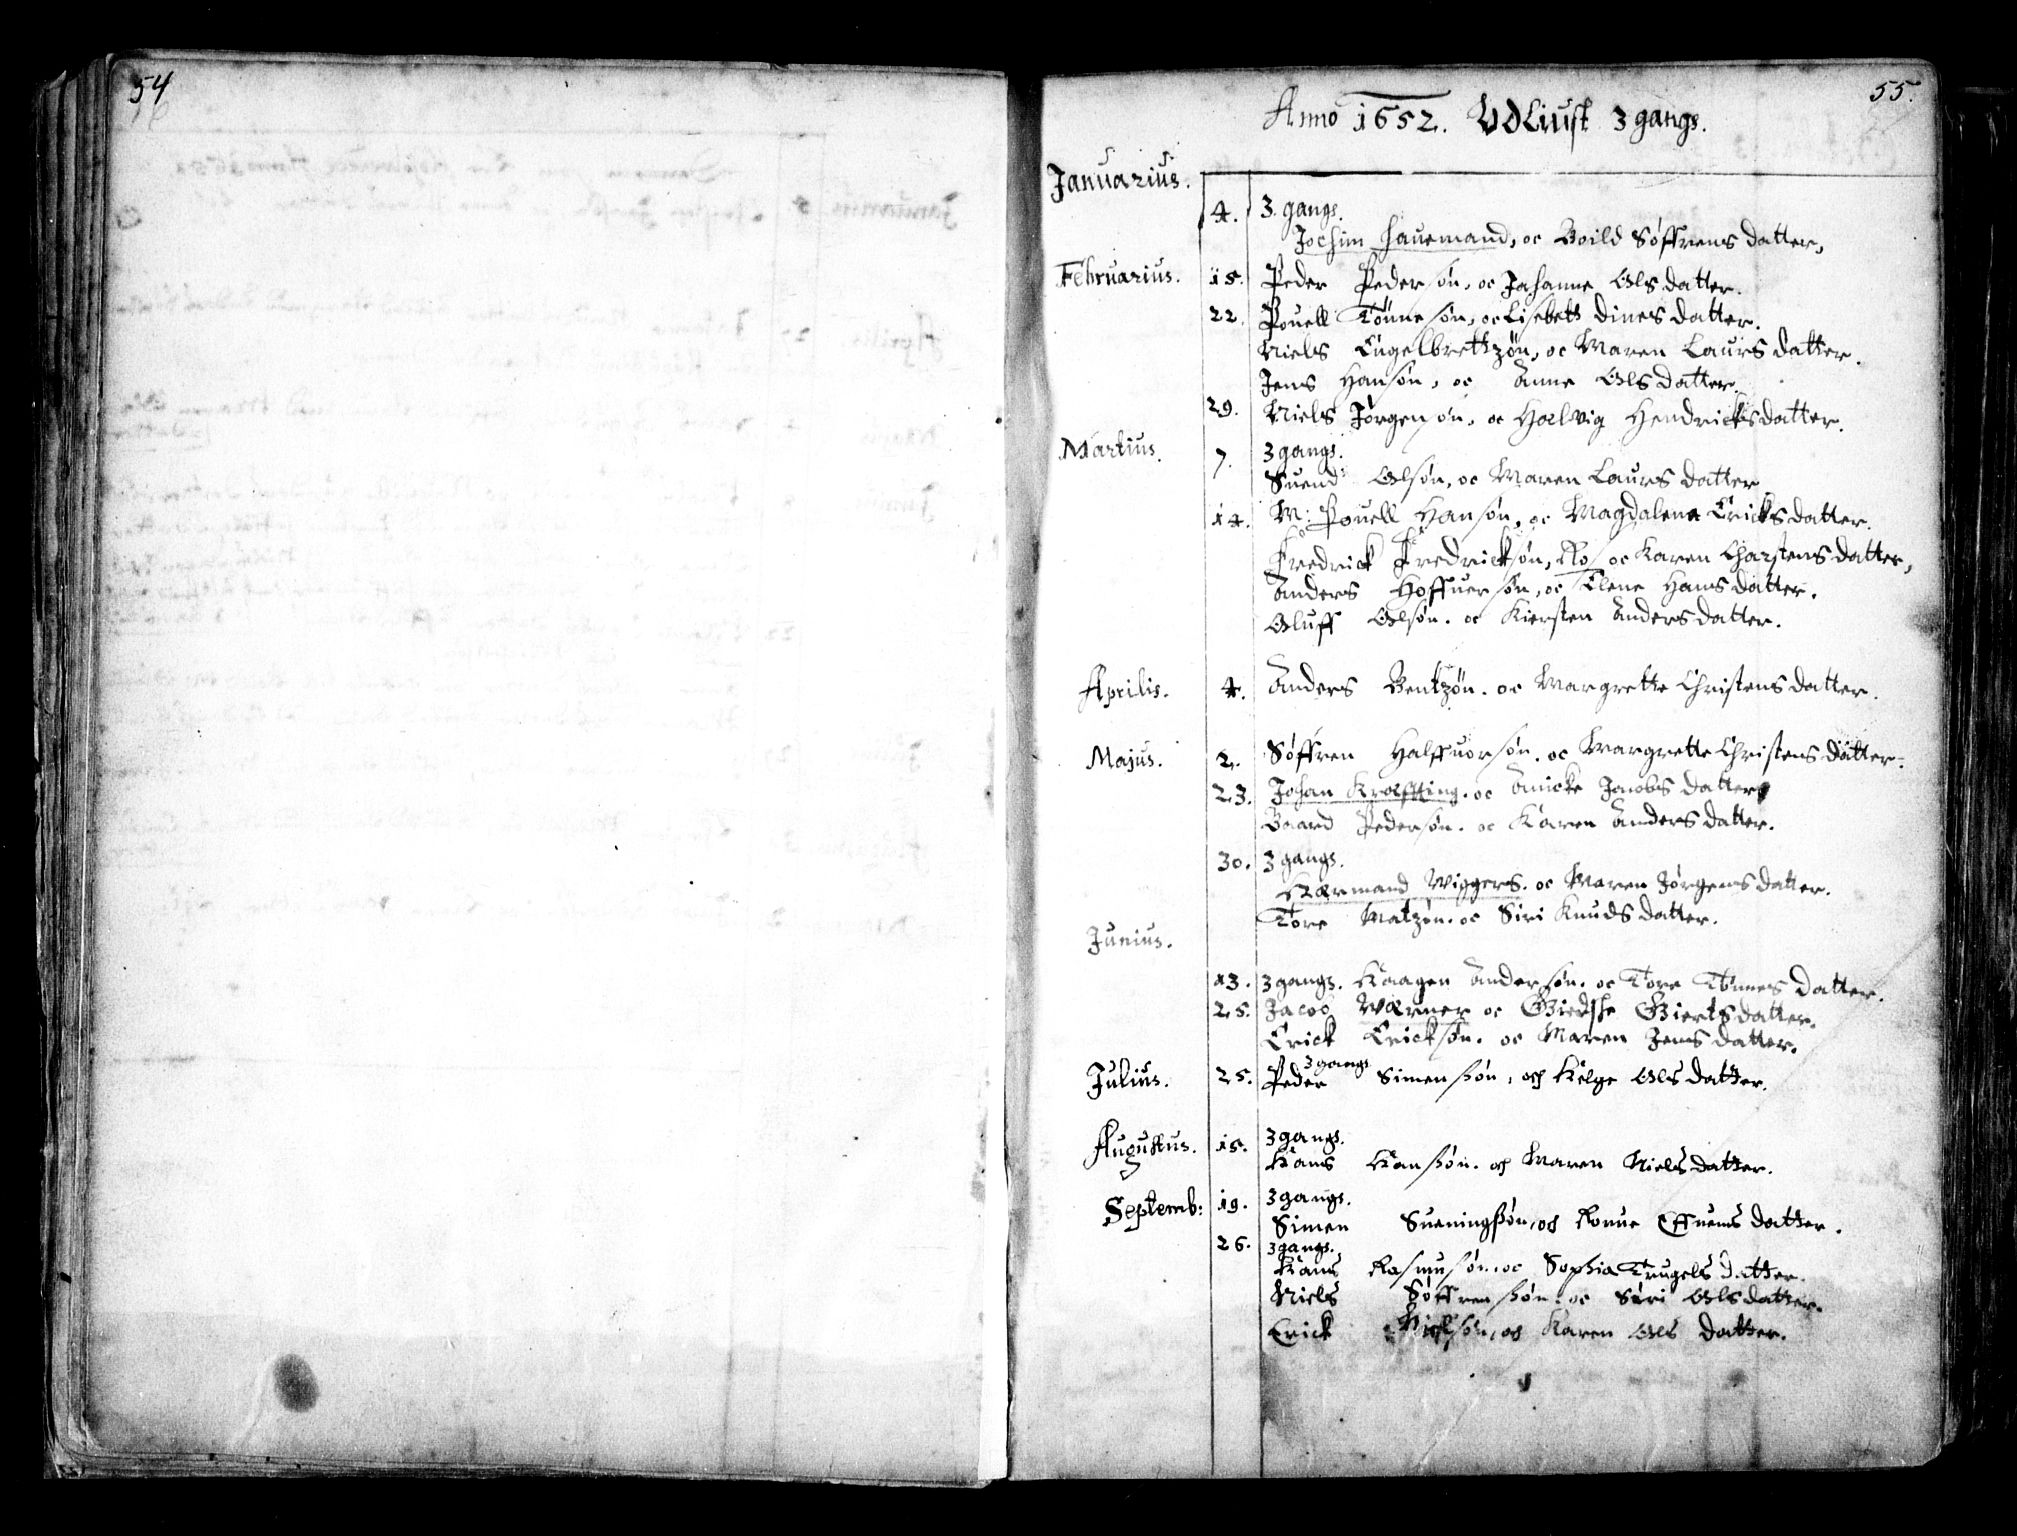 54
55.
Anno 1652. Vdliust 3 gangs.
Januarius.
4. 3. gangs.
Jochim Hauemand, oc Boild Søffrens datter,
Februarius. 15. Peder Pedersøn, oc Johanne Olsdatter.
22. Pouell Tønnesøn, oc Lisebett Dines datter.
Niels Engelbrettzøn, oc Maren Laurs datter.
Jens Hansøn, oc Anne Olsdatter.
29. Niels Jørgensøn, oc Hælvig Hendricksdatter.
Martius. 7. 3 gangs.
Suend Olsøn, oc Maren Laurs datter
14. M: Pouell Hansøn, oc Magdalena Ericksdatter.
Fredrick Fredricksøn, Ros oc Karen Charstensdatter,
Anders Hoffuersøn, oc Elene Hansdatter.
Oluff Olsøn. oc Kiersten Andersdatter.
Aprilis. 4. Anders Bentzøn. oc Margrette Christensdatter.
Majus. 2. Søffren Halffuorsøn. oc Margrette Christens datter.
23. Johan Kræffting. oc Anicke Jacobs datter
Baard Pedersøn. oc Karen Andersdatter.
30. 3 gangs.
Hærmand Wiggers. oc Maren Jørgensdatter.
Tore Matzøn. oc Siri Knudsdatter.
Junius.
13. 3 gangs. Haagen Andersøn. oc Tore Tønnes datter.
25. Jacob Wærner oc Giedske Giertsdatter.
Erick Ericksøn. oc Maren Jensdatter.
3 gangs
Julius. 25. Peder Simenssøn, och Helge Olsdatter.
Augustus. 15. 3 gangs.
Hans Hanssøn. och Maren Nielsdatter.
Septemb: 19. 3 gangs.
Simen Sueningssøn, och Ronne Effuens datter.
26. 3 gangs.
Hans Rasmusøn. oc Sophia Trugelsdatter.
Niels Søffrenssøn. oc Siri Olsdatter.
Erick Nielsøn, och Karen Ols datter.